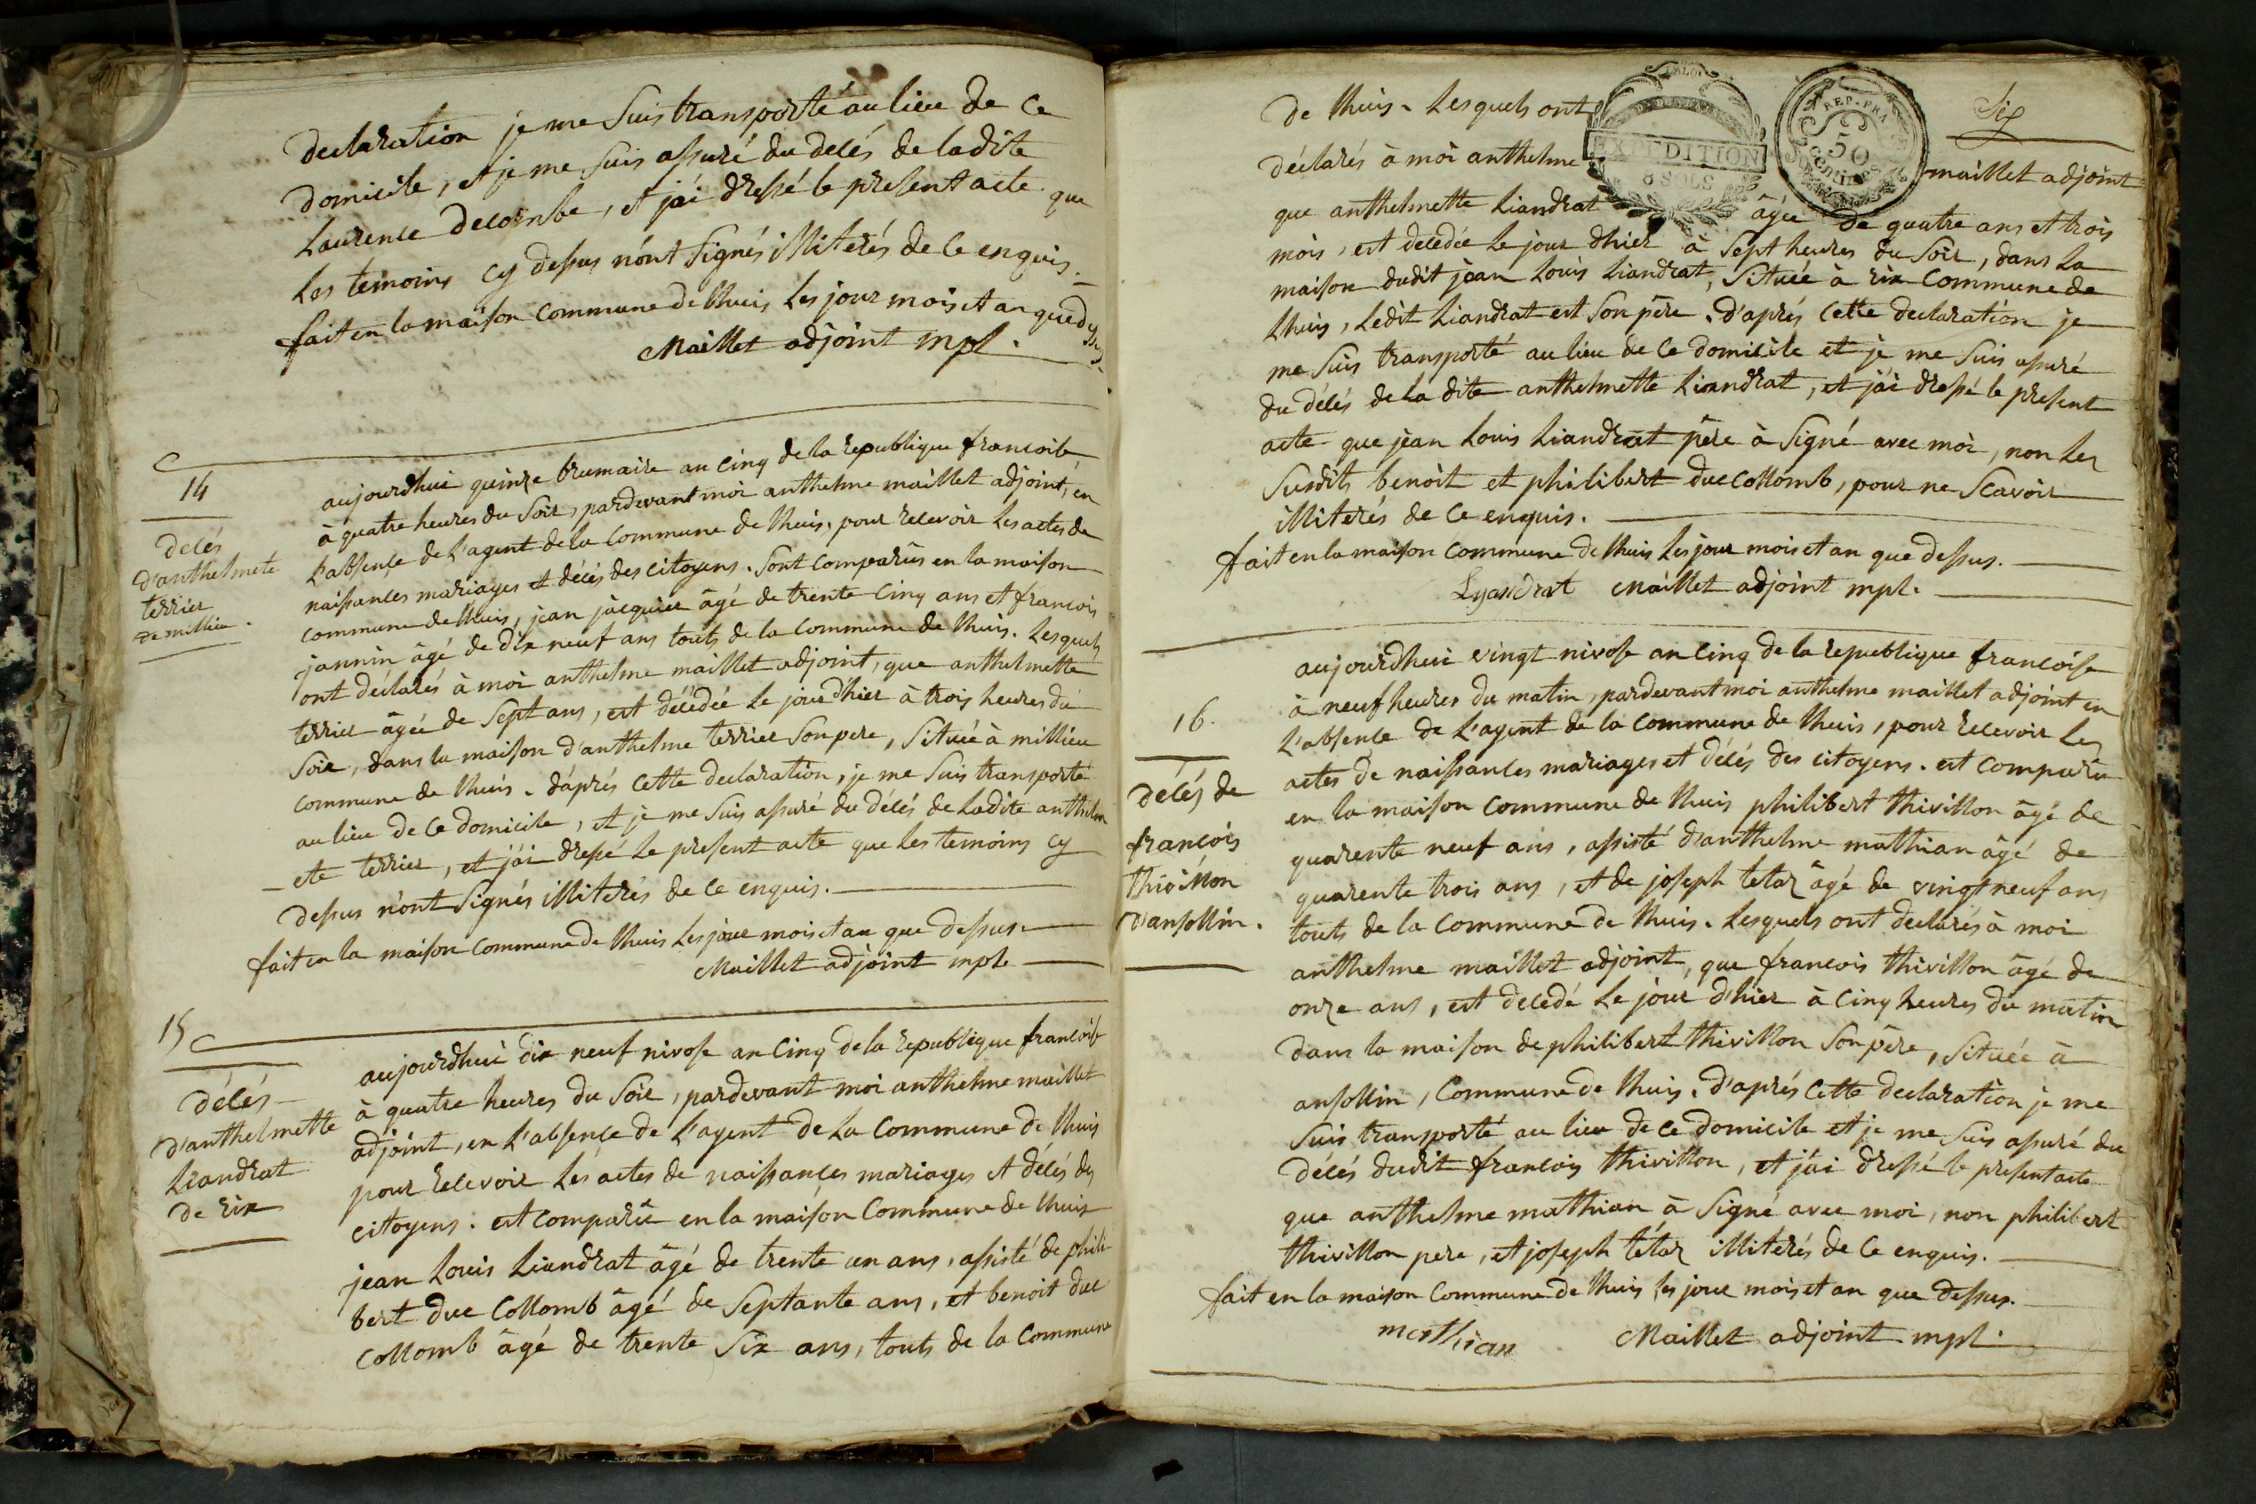 declaration je me suis transporté au lieu de ce
domicile, et je me suis assuré du delés de ladite
Laurence decombe, et j'ai dressé le present acte que
les temoins cy dessus n'ont signés illiterés de ce enquis.
fait en la maison commune de lhuis les jour mois et an que dessus.
Maillet adjoint mpl.
14
delés
d'anthelmete
terrier
de millieu.
aujourdhui quinze brumaire an cinq de la republique francoise
à quatre heures du soir, pardevant moi anthelme maillet adjoint, en
l'absence de l'agent de la commune de lhuis. pour recevoir les actes de
naissances mariages et décés des citoyens. sont comparus en la maison
commune de lhuis, jean jacquier âgé de trente cinq ans et francois
jannin âgé de dix neuf ans touts de la commune de lhuis. lesquels
ont déclarés à moi anthelme maillet adjoint, que anthelmette
terrier âgée de sept ans, est décédée le jour d'hier à trois heures du
soir, dans la maison d'anthelme terrier son pere, située à millieu
commune de lhuis. d'aprés cette declaration, je me suis transporté
au lieu de ce domicile, et je me suis assuré du délés de ladite anthelm
ete terrier, et j'ai dressé le present acte que les temoins cy
dessus n'ont signés illiterés de ce enquis.
fait en la maison commune de lhuis les jour mois et an que dessus.
Maillet adjoint mpl.
15
délés
d'anthelmette
Liandrat
de rix
aujourdhui dix neuf nivose an cinq de la republique francoise
à quatre heures du soir, pardevant moi anthelme maillet
adjoint, en l'absence de l'agent de la commune de lhuis
pour recevoir les actes de naissances mariages et délés des
citoyens. est comparu en la maison commune de lhuis
jean Louis Liandrat âgé de trente un ans, assisté de phili
bert duc Collomb âgé de septante ans, et benoit duc
Collomb âgé de trente six ans, touts de la commune
Six
EXPEDITION
8 SOLS
REP. FRA
50
centimes
de lhuis. lesquels ont
déclarés à moi anthelme maillet adjoint
que anthelmette Liandrat âgée de quatre ans et trois
mois, est decedée le jour dhier à sept heures du soir, dans la
maison dudit jean Louis Liandrat, située à rix commune de
lhuis, ledit Liandrat est son père. d'aprés cette declaration je
me suis transporté au lieu de ce domicile et je me suis assuré
du délés de la dite anthelmette Liandrat, et j'ai dressé le present
acte que jean Louis Liandrat père à signé avec moi, non les
susdits benoit et philibert duc Collomb, pour ne scavoir
illiterés de ce enquis.
fait en la maison commune de lhuis les jour mois et an que dessus.
Lyandrat Maillet adjoint mpl.
16.
délés de
francois
thivillon
d'ansollin.
aujourdhui vingt nivose an cinq de la republique francoise
à neuf heures du matin, pardevant moi anthelme maillet adjoint en
l'absence de l'agent de la commune de lhuis, pour recevoir les
actes de naissances mariages et délés des citoyens. est comparu
en la maison commune de lhuis philibert thivillon âgé de
quarente neuf ans, assisté d'anthelme mathian âgé de
quarente trois ans, et de joseph tetaz âgé de vingt neuf ans
touts de la commune de lhuis. lesquels ont declarés à moi
anthelme maillet adjoint, que francois thivillon âgé de
onze ans, est decedé le jour d'hier à cinq heures du matin
dans la maison de philibert thivillon son père, située à
ansollin, commune de lhuis. d'aprés cette declaration je me
suis transporté au lieu de ce domicile et je me suis assuré du
délés dudit francois thivillon, et j'ai dressé le present acte
que anthelme mathian à signé avec moi, non philibert
thivillon pere, et joseph tétaz illitérés de ce enquis.
fait en la maison commune de lhuis les jour mois et an que dessus.
mathian Maillet adjoint mpl.